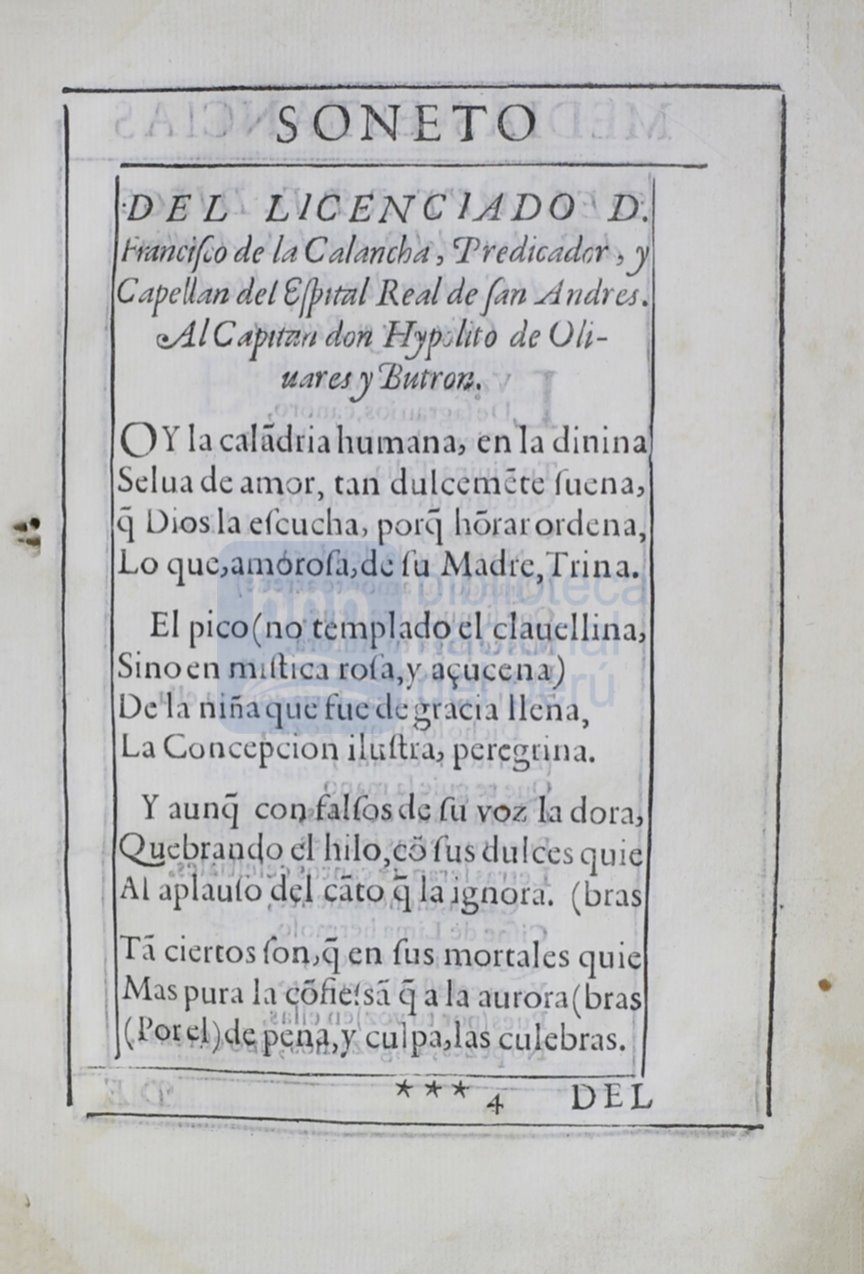 SONETO
DEL LICENCIADO D.
Franciſco de la Calancha, Predicador, y
Capellan del Eſpital Real de ſan Andres.
Al Capitan don Hypolito de Oli-
uares y Butron.
OY la calādria humana, en la dinina
Selua de amor, tan dulcemēte ſuena,
q̄ Dios la eſcucha, porq̄ hōrar ordena,
Lo que, amoroſa, de ſu Madre, Trina.
El pico (no templado el clauellina,
Sino en miſtica roſa, y açucena)
De la niña que fue de gracia llena,
La Concepcion iluſtra, peregrina.
Y aunq̄ con falſos de ſu voz la dora,
Quebrando el hilo, cō ſus dulces quie
Al aplauſo del cāto q̄ la ignora. (bras
Tā ciertos ſon, q̄ en ſus mortales quie
Mas pura la cōfieſsā q̄ a la aurora (bras
(Por el) de pena, y culpa, las culebras.
*** 4 DEL
biblioteca
nacional
del perú